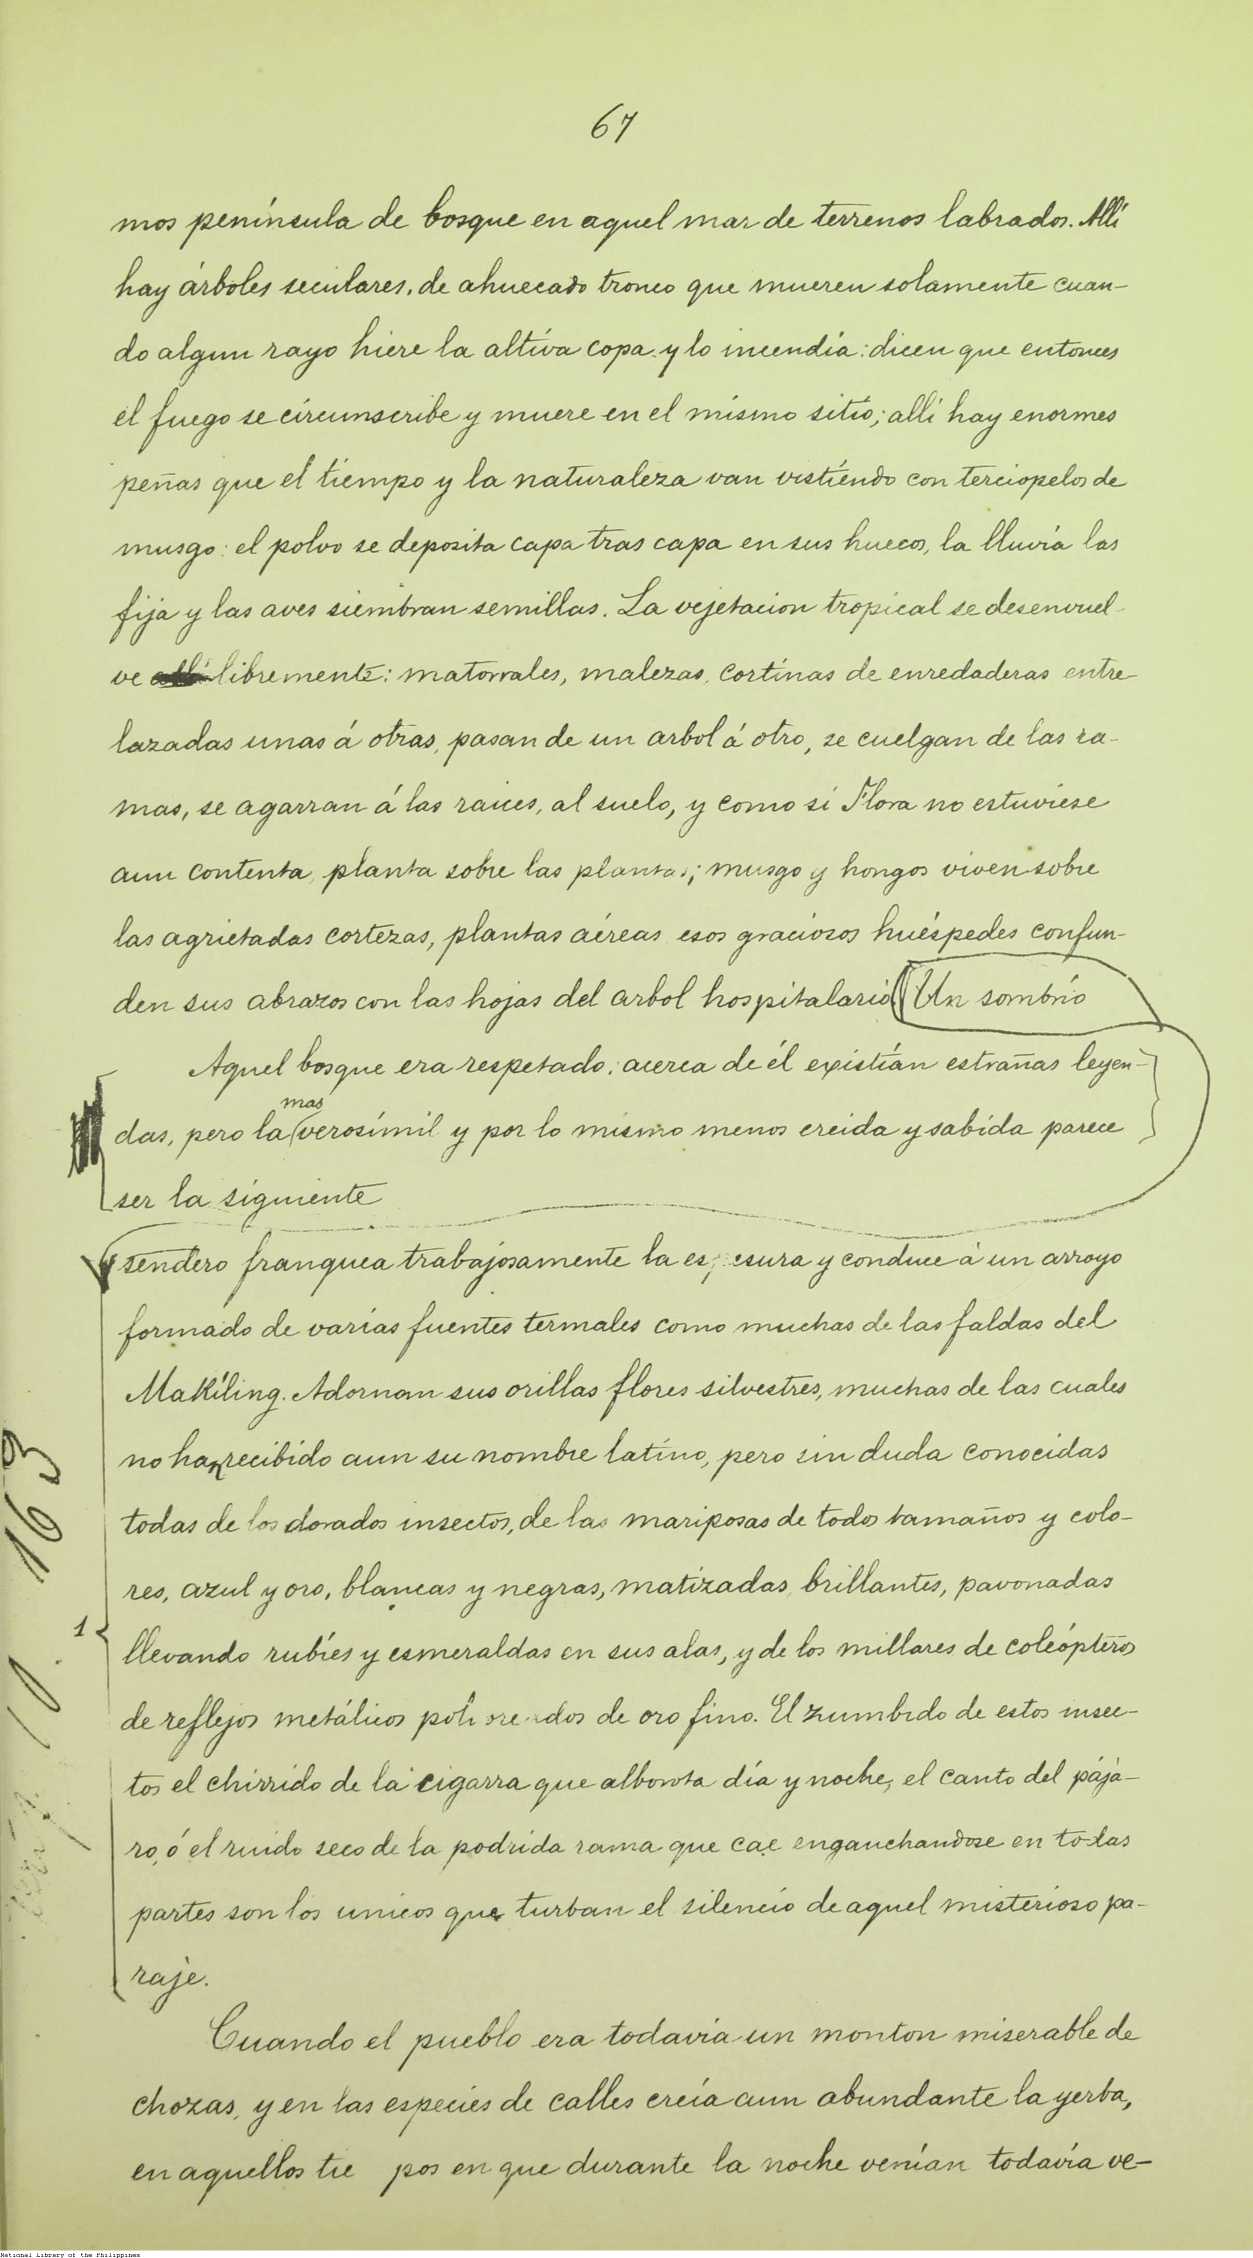 67
mos península de bosque en aquel mar de terrenos labrados. Allí
hay árboles seculares, de ahuecado tronco que mueren solamente cuan-
do algun rayo hiere la altiva copa y lo incendia: dicen que entonces
el fuego se circunscribe y muere en el mismo sitio; allí hay enormes
peñas que el tiempo y la naturaleza van vistiendo con terciopelos de
musgo: el polvo se deposita capa tras capa en sus huecos, la lluvia las
fija y las aves siembran semillas. La vejetacion tropical se desenvuel-
ve libremente: matorrales, malezas, cortinas de enredaderas entre-
lazadas unas á otras, pasan de un arbol á otro, se cuelgan de las ra-
mas, se agarran á las raices, al suelo, y como si Flora no estuviese
aun contenta, planta sobre las plantas; musgo y hongos viven sobre
las agrietadas cortezas, plantas aéreas esos graciosos huéspedes confun-
den sus abrazos con las hojas del arbol hospitalario Un sombrío
Aquel bosque era respetado: acerca de él existían estrañas leyen-
das, pero la mas verosímil y por lo mismo menos creida y sabida parece
ser la siguiente
sendero franquea trabajosamente la espesura y conduce á un arroyo
formado de varias fuentes termales como muchas de las faldas del
Makiling. Adornan sus orillas flores silvestres, muchas de las cuales
no han recibido aun su nombre latino, pero sin duda conocidas
todas de los dorados insectos, de las mariposas de todos tamaños y colo-
res, azul y oro, blancas y negras, matizadas, brillantes, pavonadas
llevando rubíes y esmeraldas en sus alas, y de los millares de coleópteros
de reflejos metálicos de oro fino. El zumbido de estos insec-
tos el chirrido de la cigarra que alborota día y noche, el canto del pája-
ro, ó el ruido seco de la podrida rama que cae enganchandose en todas
partes son los unicos que turban el silencio de aquel misterioso pa-
raje.
Cuando el pueblo era todavia un monton miserable de
chozas, y en las especies de calles crecía aun abundante la yerba,
en aquellos tie pos en que durante la noche venían todavía ve-
1
10. 163
National Library of the Philippines